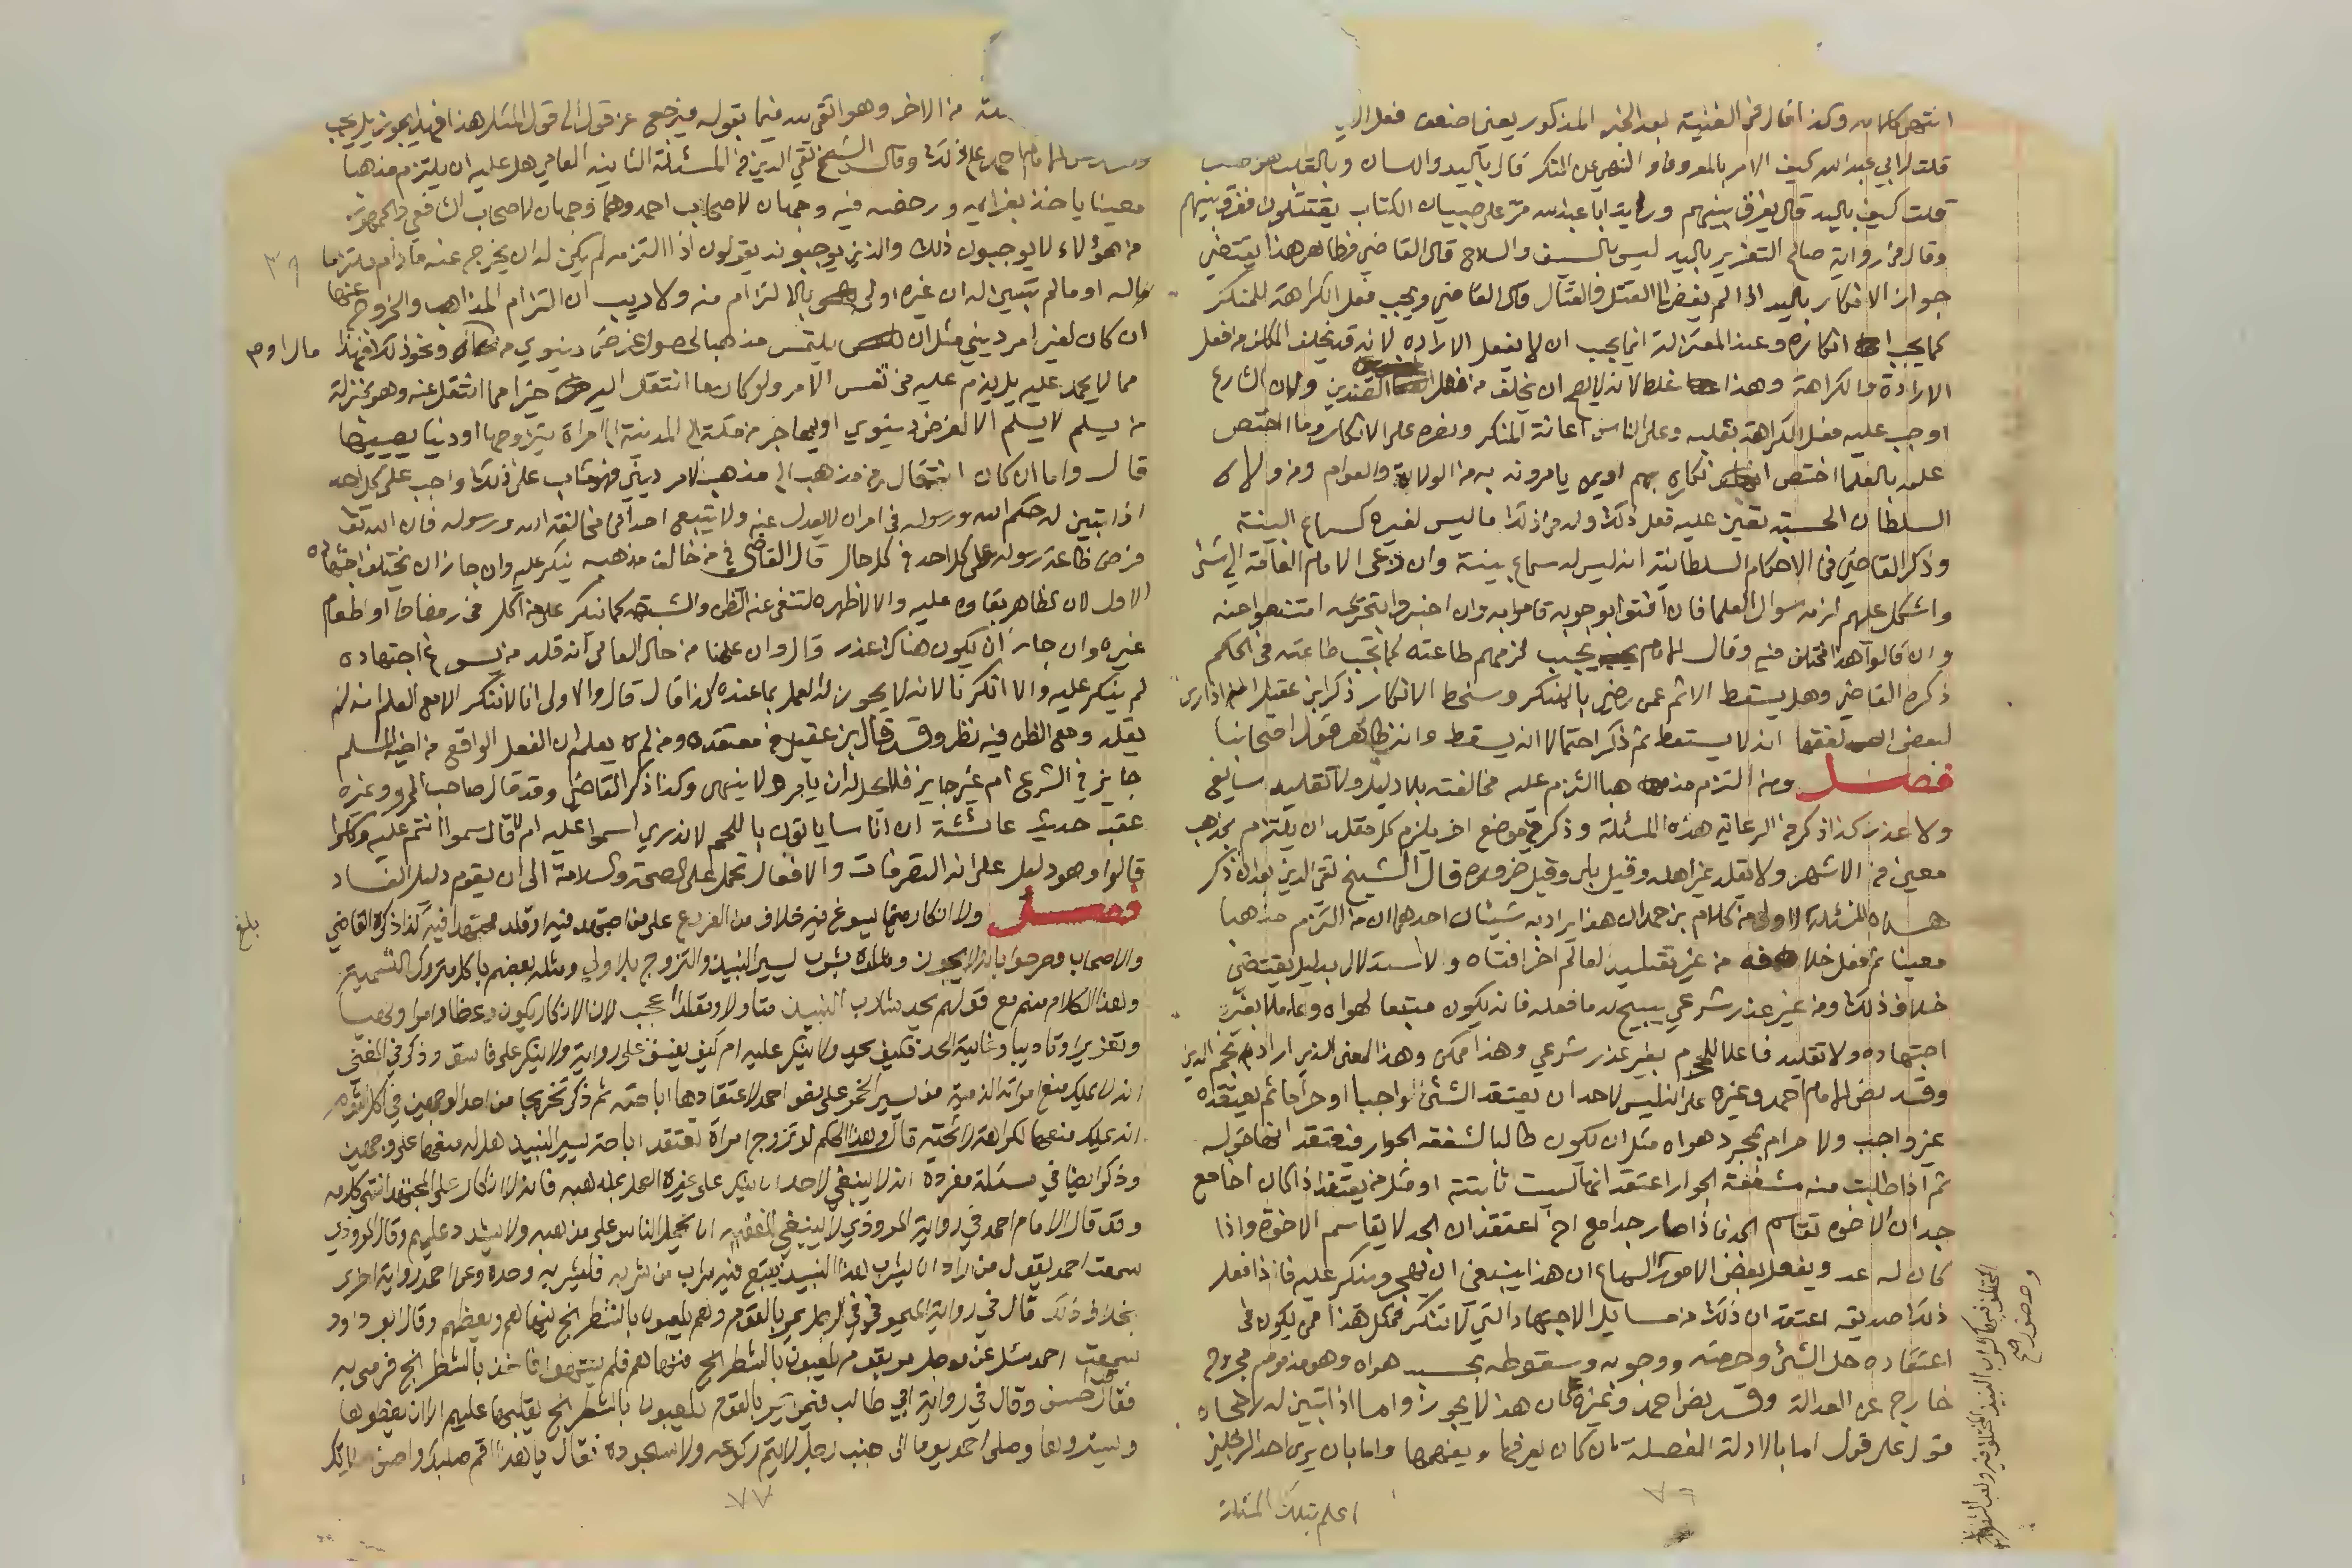 انتهى كلامه وكذا قال في الغنية بعد الخبر المذكور يعني اضعف فعل
قلت لابي عبد الله كيف الامر بالمعروف والنهي عن المنكر قال باليد واللسان وبالقلب هو اضعف
قلت كيف باليد قال يفرق بينهم ورايت ابا عبد الله مر على صبيان الكتاب يقتتلون ففرق بينهم
وقال في رواية صالح التغيير باليد ليس بالسيف والسلاح قال القاضي فظاهر هذا يقتضي
جواز الانكار باليد اذا لم يفض الى القتل والقتال قال القاضي ويجب فعل الكراهة للمنكر
كما يجب انكاره وعند المعتزلة انما يجب ان لا يفعل الارادة لانه قد يخلف المكلف من فعل
الارادة والكراهة وهذا غلط لانه لا يصح ان يخلف من فعل الضدين ولان الشارع
اوجب عليه فعل الكراهة بقلبه وعلى الناس اعانة المنكر ونصره على الانكار وما اختص
علمه بالعلما اختص انكاره بهم او بمن يامرونه به من الولاة والعوام ومن ولاه
السلطان الحسبة تعين عليه فعل ذلك وله في ذلك ما ليس لغيره كسماع البينة
وذكر القاضي في الاحكام السلطانية انه ليس له سماع بينة وان دعى الامام العامة الى شئ
واشكل عليهم لزمه سوال العلما فان افتوا بوجوبه قاموا به وان اخبروا بتحريمه امتنعوا منه
وان قالوا هذا مختلف فيه وقال الامام يجب لزمهم طاعته كما تجب طاعته في الحكم
ذكره القاضي وهل يسقط الاثم عمن رضي بالمنكر وسخط الانكار ذكر ابن عقيل
لبعض الفقها انه لا يسقط ثم ذكر احتمالا انه يسقط وانه ظاهر قول اصحابنا
فصل ومن التزم مذهبا انكر عليه مخالفته بلا دليل ولا تقليد سايغ
ولا عذر كذا ذكر في الرعاية هذه المسئلة وذكر في موضع اخر يلزم كل مقلد ان يلتزم بمذهب
معين في الاشهر ولا يقلد غير اهله وقيل بلى وقيل ضرورة قال الشيخ تقي الدين بعد ان ذكر
هذه المسئلة الاولى من كلام بن حمدان هذا يراد به شيئان احدهما ان من التزم مذهبا
معينا ثم فعل خلافه من غير تقليد لعالم اخر افتاه ولا استدلال بدليل يقتضي
خلاف ذلك ومن غير عذر شرعي يبيح له ما فعله فانه يكون متبعا لهواه وعاملا بغير
اجتهاد ولا تقليد فاعلا للمحرم بغير عذر شرعي وهذا ممكن وهذا المعنى الذي اراده نجم الدين
وقد نص الامام احمد وغيره على انه ليس لاحد ان يعتقد الشئ واجبا او حراما ثم يعتقده
غير واجب ولا حرام بمجرد هواه مثل ان يكون طالبا لشفعة الجوار فيعتقد انها حق له
ثم اذا طلبت منه شفعة الجوار اعتقد انها ليست ثابتة او مثل من يعتقد اذا كان اخا مع
جد ان الاخوة تقاسم الجد فاذا صار جدا مع اخ اعتقد ان الجد لا يقاسم الاخوة واذا
كان له عدو يفعل بعض الامور كالسماع ان هذا ينبغي ان يهجر وينكر عليه فاذا فعل
ذلك صديقه اعتقد ان ذلك من مسايل الاجتهاد التي لا تنكر فمثل هذا من يكون في
اعتقاده حل الشئ وحرمته ووجوبه وسقوطه بحسب هواه وهو مذموم مجروح
خارج عن العدالة وقد نص احمد وغيره على ان هذا لا يجوز واما اذا تبين له رجحان
قول على قول اما بالادلة المفصلة ان كان يعرفها ويفهمها واما بان يرى احد الرجلين
اعلم بتلك المسئلة
٧٦
من الاخر وهو اتقى لله فيما يقوله فيرجع عن قول الى قول لمثل هذا فهذا يجوز بل يجب
الامام احمد على ذلك وقال الشيخ تقي الدين في المسئلة الثانية العامي هل عليه ان يلتزم مذهبا
معينا ياخذ بعزائمه ورخصه فيه وجهان لاصحاب احمد وهما وجهان لاصحاب الشافعي والجمهور
من هؤلاء لا يوجبون ذلك والذين يوجبونه يقولون اذا التزمه لم يكن له ان يخرج عنه ما دام ملتزما
له او ما لم يتبين له ان غيره اولى بالالتزام منه ولا ريب ان التزام المذاهب والخروج عنها
ان كان لغير امر ديني مثل ان يلتمس مذهبا لحصول غرض دينوي من مال او جاه ونحو ذلك فهذا
مما لا يحمد عليه بل يذم عليه في نفس الامر ولو كان ما انتقل اليه خيرا مما انتقل عنه وهو بمنزلة
من يسلم لا يسلم الا لغرض دينوي او يهاجر من مكة الى المدينة الى امراة يتزوجها او دنيا يصيبها
قال واما ان كان انتقال من مذهب الى مذهب لامر ديني فهو مثاب على ذلك واجب على كل احد
اذا تبين له حكم الله ورسوله في امر ان لا يعدل عنه ولا يتبع احدا في مخالفة الله ورسوله فان الله
فرض طاعة رسوله على كل احد في كل حال قال القاضي في من خالف مذهبه ينكر عليه وان جاز ان يختلف اجتهاده
الاول لان الظاهر بقاوه عليه والا لاظهره لتنفى عنه الظن والشبهة كما ننكر على من اكل في رمضان او طعام
غيره وان جاز ان يكون هناك عذر قال وان علمنا من حال العامي انه قلد من يسوغ اجتهاده
لم ينكر عليه والا انكرنا لانه لا يجوز له العمل بما عنده كذا قال قال والاولى انا لا ننكر الا مع العلم انه لم
يقلد ومع الظن فيه نظر وقد قال بن عقيل في معتقده ومن لم يعلم ان الفعل الواقع من اخيه المسلم
جايز في الشرع ام غير جايز فلا يحل له ان يامر ولا ينهى وكذا ذكر القاضي وقد قال صاحب المحرر وغيره
عقب حديث عائشة ان اناسا ياتون باللحم لا ندري اسموا عليه ام لا قال سموا انتم عليه وكلوا
قالوا وهو دليل على ان التصرفات والافعال تحمل على الصحة والسلامة الى ان يقوم دليل الفساد
فصل ولا انكار فيما يسوغ فيه خلاف من الفروع على من اجتهد فيه او قلد مجتهدا فيه كذا ذكره القاضي
والاصحاب وصرحوا بانه لا يجوز ومثلوه بشرب يسير النبيذ والتزوج بلا ولي ومثله بعضهم باكل متروك التسمية
وهذا الكلام منهم مع قولهم يحد شارب النبيذ متاولا ومقلدا اعجب لان الانكار يكون وعظا وامرا ونهيا
وتعزيرا وتاديبا وغايته الحد فكيف يحد ولا ينكر عليه ام كيف يفسق على رواية ولا ينكر على فاسق وذكر في المغني
انه لا يملك منع امراته الذمية من يسير الخمر على نص احمد لاعتقادها اباحته ثم ذكر تخريجا من احد الوجهين في اكل الثوم
انه يملك منعها لكراهة رائحته قال وهذا الحكم لو تزوج امراة تعتقد اباحة يسير النبيذ هل له منعها على وجهين
وذكر ايضا في مسئلة مفردة انه لا ينبغي لاحد ان ينكر على غيره العمل بمذهبه فانه لا انكار على المجتهد انتهى كلامه
وقد قال الامام احمد في رواية المروذي لا ينبغي للفقيه ان يحمل الناس على مذهبه ولا يشدد عليهم وقال المروذي
سمعت احمد يقول من اراد ان يشرب هذا النبيذ يتبع فيه شرب من شربه فليشربه وحده وعن احمد رواية اخرى
بخلاف ذلك قال في رواية الميموني في الرجل يمر بالقوم وهم يلعبون بالشطرنج ينهاهم ويعظهم وقال ابو داود
سمعت احمد سئل عن رجل مر بقوم يلعبون بالشطرنج فنهاهم فلم ينتهوا فاخذ بالشطرنج فرمى به
فقال قد احسن وقال في رواية ابي طالب فيمن يمر بالقوم يلعبون بالشطرنج يقلبها عليهم الا ان يغطوها
ويستروها وصلى احمد يوما الى جنب رجل لا يتم ركوعه ولا سجوده فقال يا هذا اقم صلبك واحسن صلاتك
٧٧
٣٩
بلغ